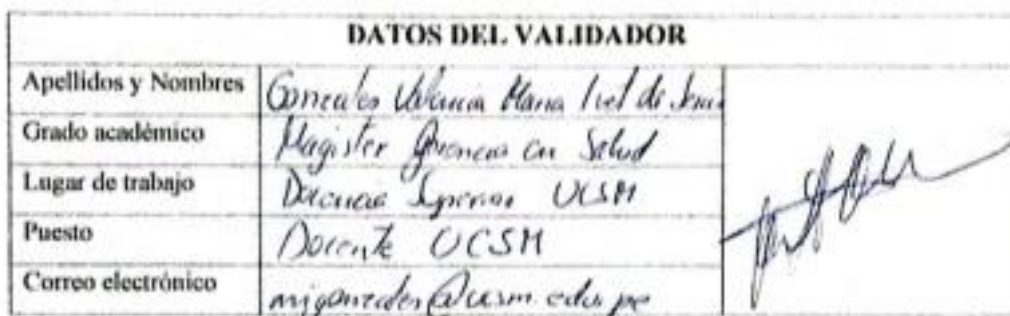 DATOS DEL VALIDADOR
Apellidos y Nombres Gonzales Valencia Maria de
Grado académico Magister Gerencia en Salud
Lugar de trabajo Docencia Superior UCSM
Puesto Docente UCSM
Correo electrónico